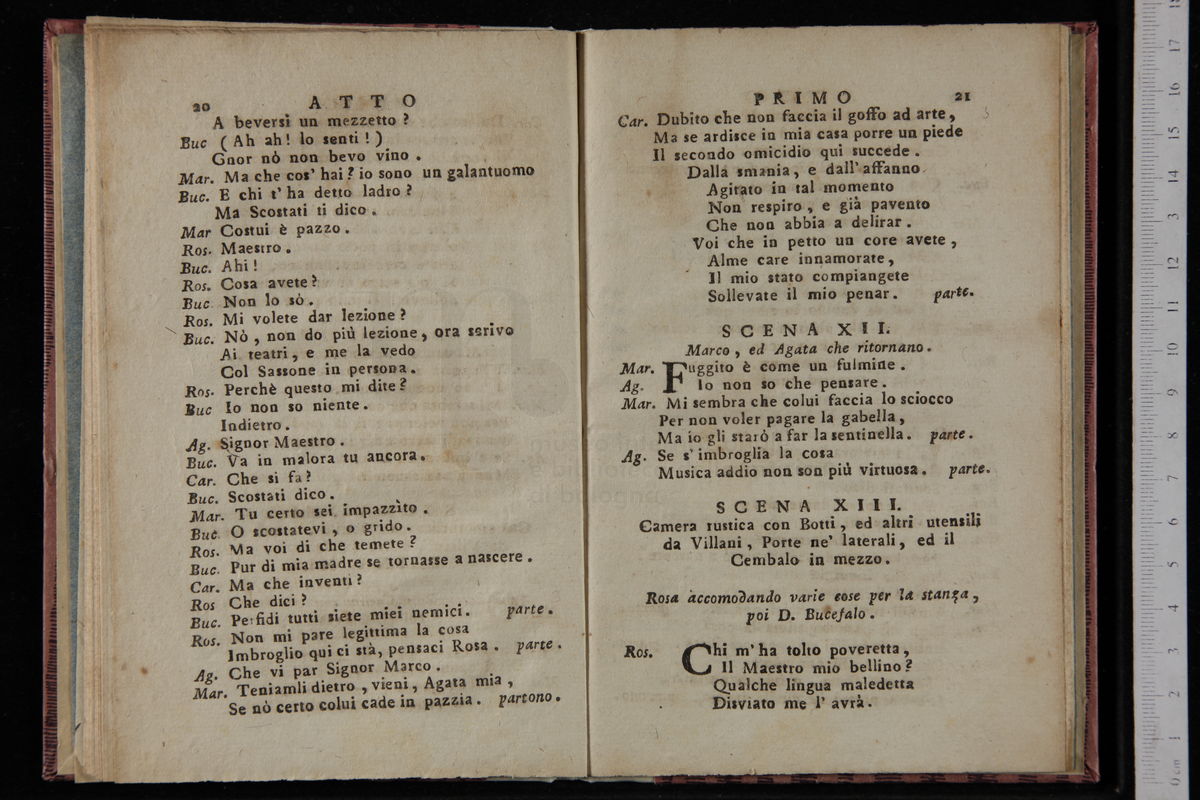 20 ATTO
A beversi un mezzetto ?
Buc ( Ah ah! lo senti ! )
Gnor nò non bevo vino .
Mar. Ma che cos' hai ? io sono un galantuomo
Buc. E chi t' ha detto ladro ?
Ma Scostati ti dico .
Mar Costui è pazzo .
Ros. Maestro .
Buc. Ahi !
Ros. Cosa avete ?
Buc. Non lo sò .
Ros. Mi volete dar lezione ?
Buc. Nò , non do più lezione , ora scrivo
Ai teatri , e me la vedo
Col Sassone in persona .
Ros. Perchè questo mi dite ?
Buc Io non so niente .
Indietro .
Ag. Signor Maestro .
Buc. Va in malora tu ancora .
Car. Che si fa ?
Buc. Scostati dico .
Mar. Tu certo sei impazzito .
Buc. O scostatevi , o grido .
Ros. Ma voi di che temete ?
Buc. Pur di mia madre se tornasse a nascere .
Car. Ma che inventi ?
Ros Che dici ?
Buc. Perfidi tutti siete miei nemici . parte .
Ros. Non mi pare legittima la cosa
Imbroglio qui ci stà, pensaci Rosa . parte .
Ag. Che vi par Signor Marco .
Mar. Teniamli dietro , vieni , Agata mia ,
Se nò certo colui cade in pazzia . partono .
PRIMO 21
Car. Dubito che non faccia il goffo ad arte ,
Ma se ardisce in mia casa porre un piede
Il secondo omicidio qui succede .
Dalla smania , e dall' affanno
Agitato in tal momento
Non respiro , e già pavento
Che non abbia a delirar .
Voi che in petto un core avete ,
Alme care innamorate ,
Il mio stato compiangete
Sollevate il mio penar . parte .
SCENA XII.
Marco , ed Agata che ritornano .
Mar. Fuggito è come un fulmine .
Ag. Io non so che pensare .
Mar. Mi sembra che colui faccia lo sciocco
Per non voler pagare la gabella ,
Ma io gli starò a far la sentinella . parte .
Ag. Se s' imbroglia la cosa
Musica addio non son più virtuosa . parte .
SCENA XIII.
Camera rustica con Botti , ed altri utensili
da Villani , Porte ne' laterali , ed il
Cembalo in mezzo .
Rosa accomodando varie cose per la stanza ,
poi D. Bucefalo .
Ros. Chi m' ha tolto poveretta ,
Il Maestro mio bellino ?
Qualche lingua maledetta
Disviato me l' avrà .